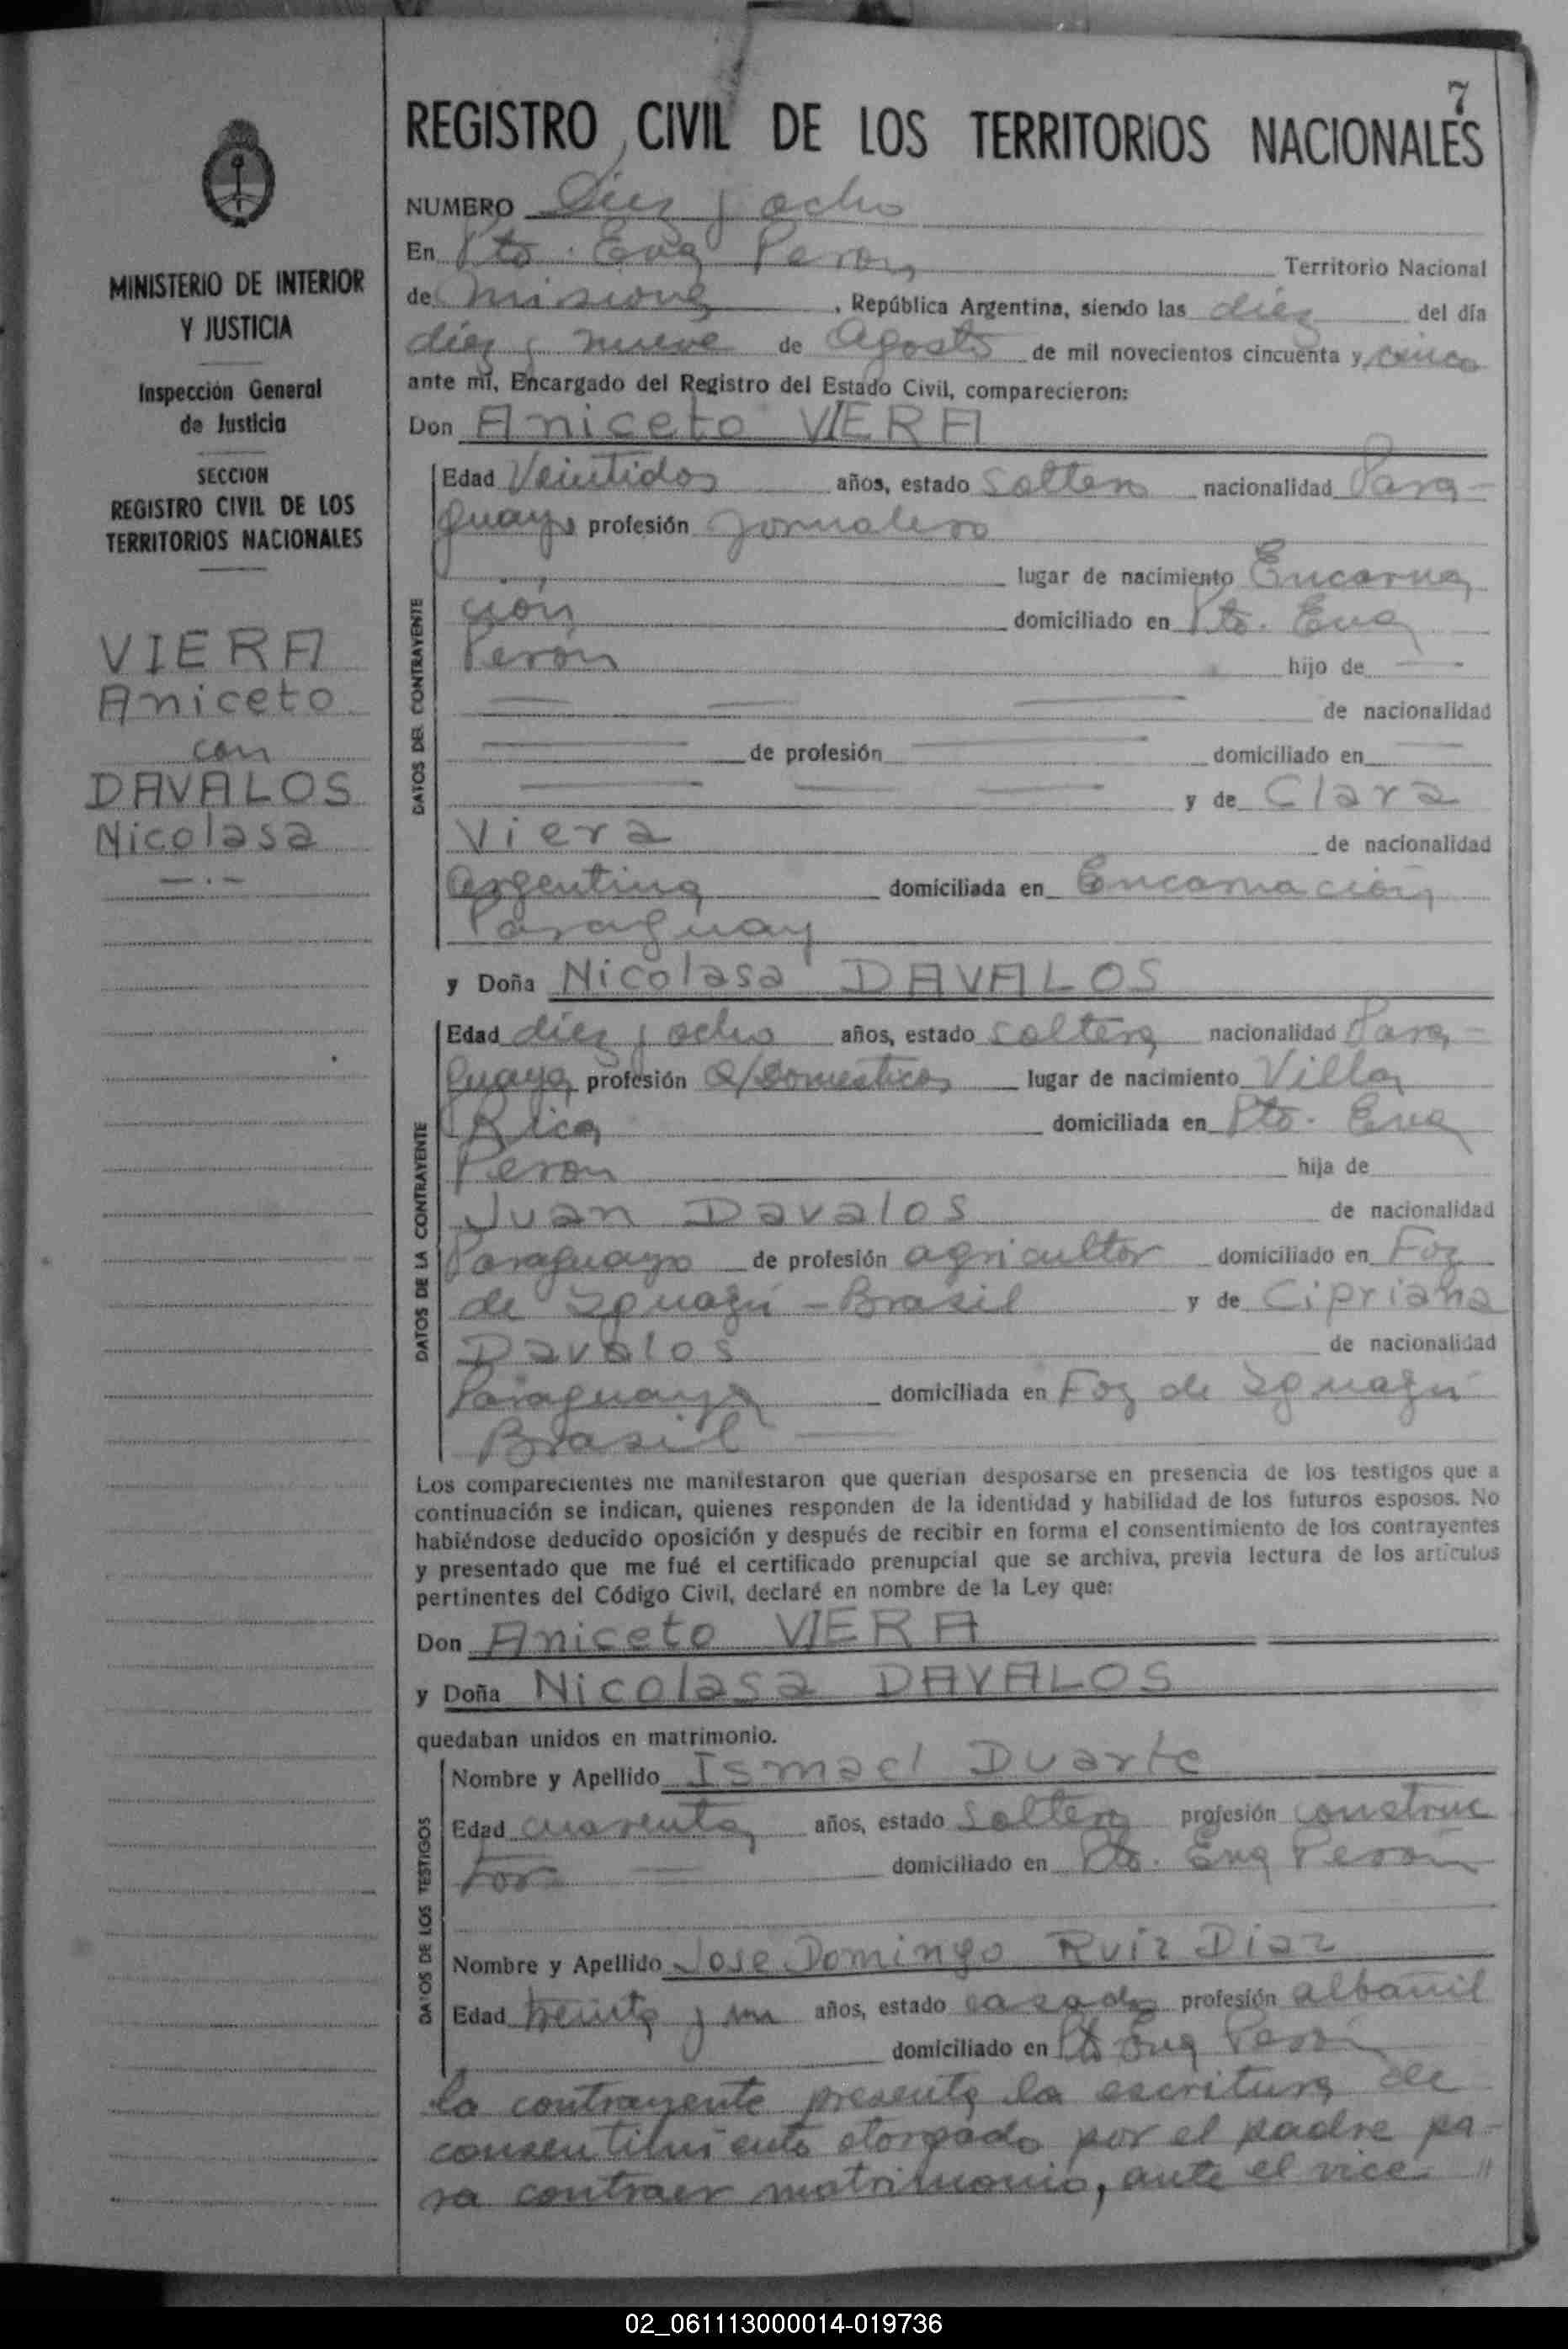 7
REGISTRO CIVIL DE LOS TERRITORIOS NACIONALES
MINISTERIO DE INTERIOR
Y JUSTICIA
Inspección General
de Justicia
SECCION
REGISTRO CIVIL DE LOS
TERRITORIOS NACIONALES
VIERA
Aniceto
con
DAVALOS
Nicolasa
NUMERO Diez y ocho
En Pto. Eva Peron Territorio Nacional
de Misiones, República Argentina, siendo las diez del día
diez y nueve de Agosto de mil novecientos cincuenta y cinco
ante mí, Encargado del Registro del Estado Civil, comparecieron:
Don Aniceto VIERA
DATOS DEL CONTRAYENTE
Edad Veintidos años, estado soltero nacionalidad Para-
guayo profesión Jornalero
lugar de nacimiento Encarna
ción domiciliado en Pto. Eva
Perón hijo de
de nacionalidad
de profesión domiciliado en
y de Clara
Viera de nacionalidad
argentina domiciliada en Encarnación
Paraguay
y Doña Nicolasa DAVALOS
DATOS DE LA CONTRAYENTE
Edad diez y ocho años, estado soltera nacionalidad Para-
guaya profesión Q/Domesticos lugar de nacimiento Villa
Rica domiciliada en Pto. Eva
Perón hija de
Juan Davalos de nacionalidad
Paraguayo de profesión agricultor domiciliado en Foz
de Iguazú - Brasil y de Cipriana
Davalos de nacionalidad
Paraguaya domiciliada en Foz de Iguazú
Brasil
Los comparecientes me manifestaron que querían desposarse en presencia de los testigos que a
continuación se indican, quienes responden de la identidad y habilidad de los futuros esposos. No
habiéndose deducido oposición y después de recibir en forma el consentimiento de los contrayentes
y presentado que me fué el certificado prenupcial que se archiva, previa lectura de los artículos
pertinentes del Código Civil, declaré en nombre de la Ley que:
Don Aniceto VIERA
y Doña Nicolasa DAVALOS
quedaban unidos en matrimonio.
DATOS DE LOS TESTIGOS
Nombre y Apellido Ismael Duarte
Edad cuarenta años, estado soltero profesión construc
tor domiciliado en Pto. Eva Perón
Nombre y Apellido Jose Domingo Ruiz Diaz
Edad treinta y un años, estado casado profesión albanil
domiciliado en Pto Eva Perón
la contrayente presenta la escritura de
consentimiento otorgado por el padre pa-
ra contraer matrimonio, ante el vice- "
02_061113000014-019736